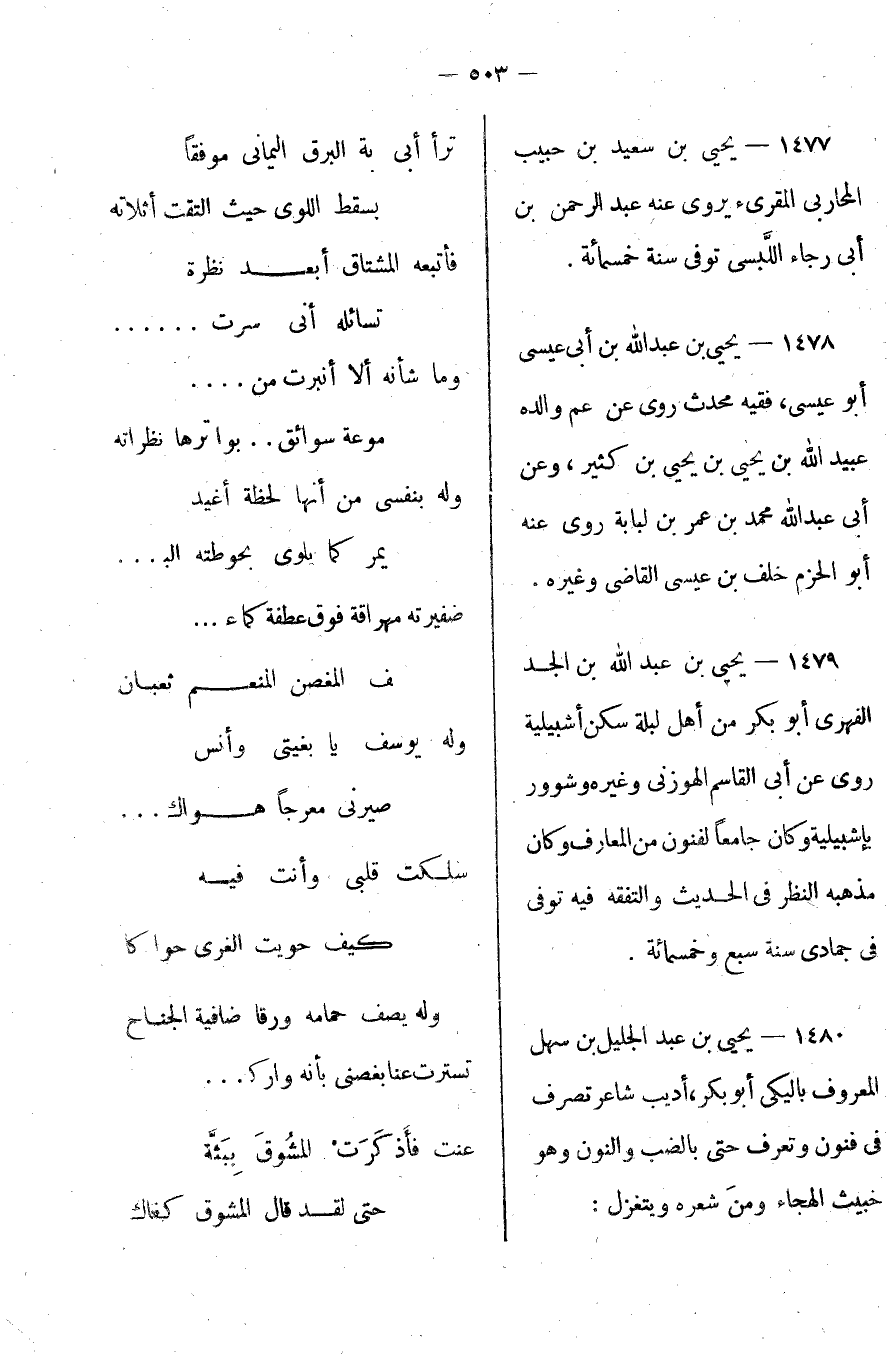 — ٥٠٣ —
١٤٧٧ — يحيى بن سعيد بن حبيب
المحاربى المقرىء يروى عنه عبد الرحمن بن
أبى رجاء اللَّبسى توفى سنة خمسمائة .
١٤٧٨ — يحيى بن عبدالله بن أبى عيسى
أبو عيسى، فقيه محدث روى عن عم والده
عبيد الله بن يحيى بن يحيى بن كثير ، وعن
أبى عبدالله محمد بن عمر بن لبابة روى عنه
أبو الحزم خلف بن عيسى القاضى وغيره .
١٤٧٩ — يحيى بن عبد الله بن الجد
الفهرى أبو بكر من أهل لبلة سكن أشبيلية
روى عن أبى القاسم الهوزنى وغيره وشوور
بإشبيلية وكان جامعاً لفنون من المعارف وكان
مذهبه النظر فى الحديث والتفقه فيه توفى
فى جمادى سنة سبع وخمسمائة .
١٤٨٠ — يحيى بن عبد الجليل بن سهل
المعروف باليكى أبو بكر، أديب شاعر تصرف
فى فنون وتعرف حتى بالضب والنون وهو
خبيث الهجاء ومنَ شعره ويتغزل :
ترأ أبى بة البرق اليمانى موفقاً
بسقط اللوى حيث التقت أثلاته
فأتبعه المشتاق أبعد نظرة
تسائله أنى سرت ......
وما شأنه ألا أنبرت من ....
موعة سوائق .. بواترها نظراته
وله بنفسى من أنها لحظة أغيد
يمر كما يلوى بحوطته الب ...
ضفيرته مهراقة فوق عطفة كماء ...
ف المغصن المنعم ثعبان
وله يوسف يا بغيتى وأنس
صيرنى معرجاً هواك ...
سلكت قلبى وأنت فيه
كيف حويت الغرى حواكا
وله يصف حمامه ورقا ضافية الجناح
تسترت عنا بغصنى بأنه وارك ...
عنت فأَذكَرَتْ المشُوقَ بِبَثَّة
حتى لقد قال المشوق كفاك